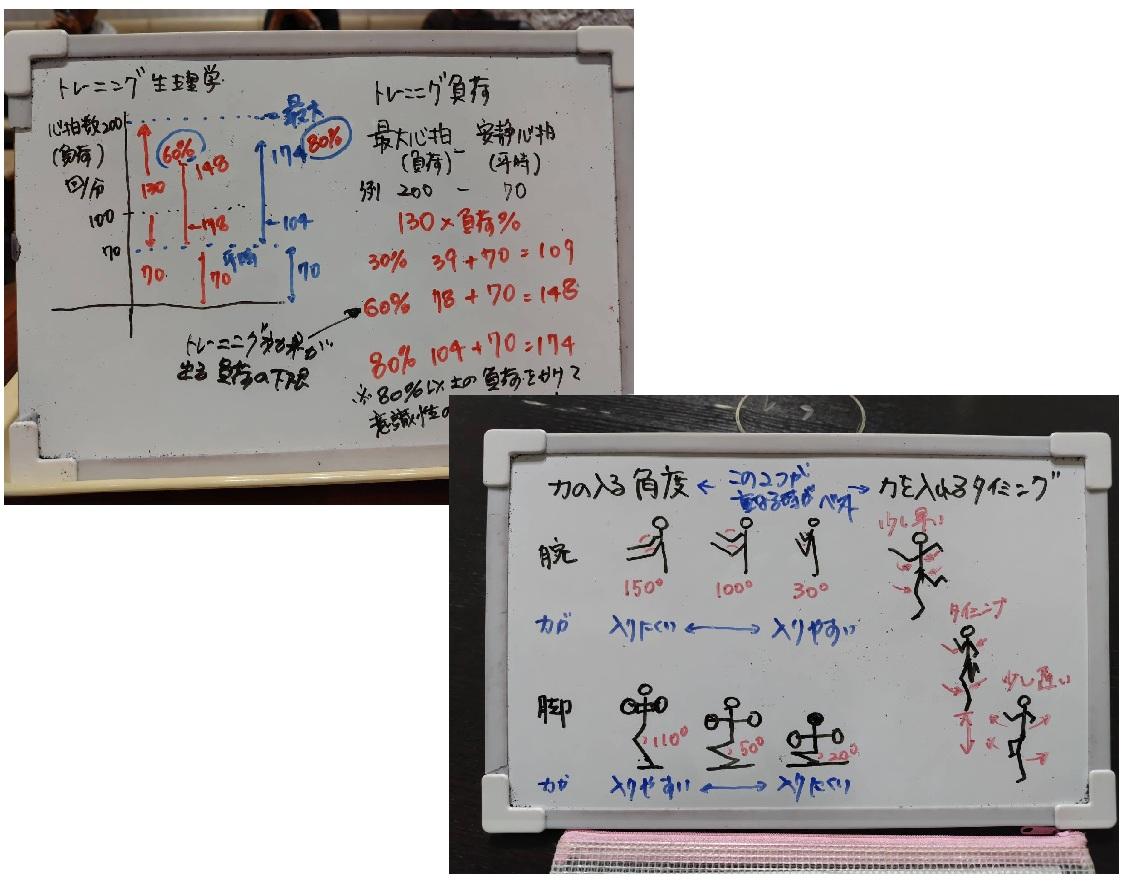 トレーニング生理学
心拍数200
(負荷)
回/分
100
70
最大
60%
148
174
80%
130
78
104
70
70
平時
70
トレーニング効果が
出る負荷の下限
トレーニング負荷
最大心拍 - 安静心拍
(負荷) (平時)
例 200 - 70
130×負荷%
30% 39+70=109
60% 78+70=148
80% 104+70=174
※80%以上の負荷をかけて
意識性の
力の入る角度
この2つが
重なる時がベスト
力を入れるタイミング
腕
150°
100°
30°
力が 入りにくい 入りやすい
脚
110°
50°
20°
力が 入りやすい 入りにくい
少し早い
タイミング
少し遅い